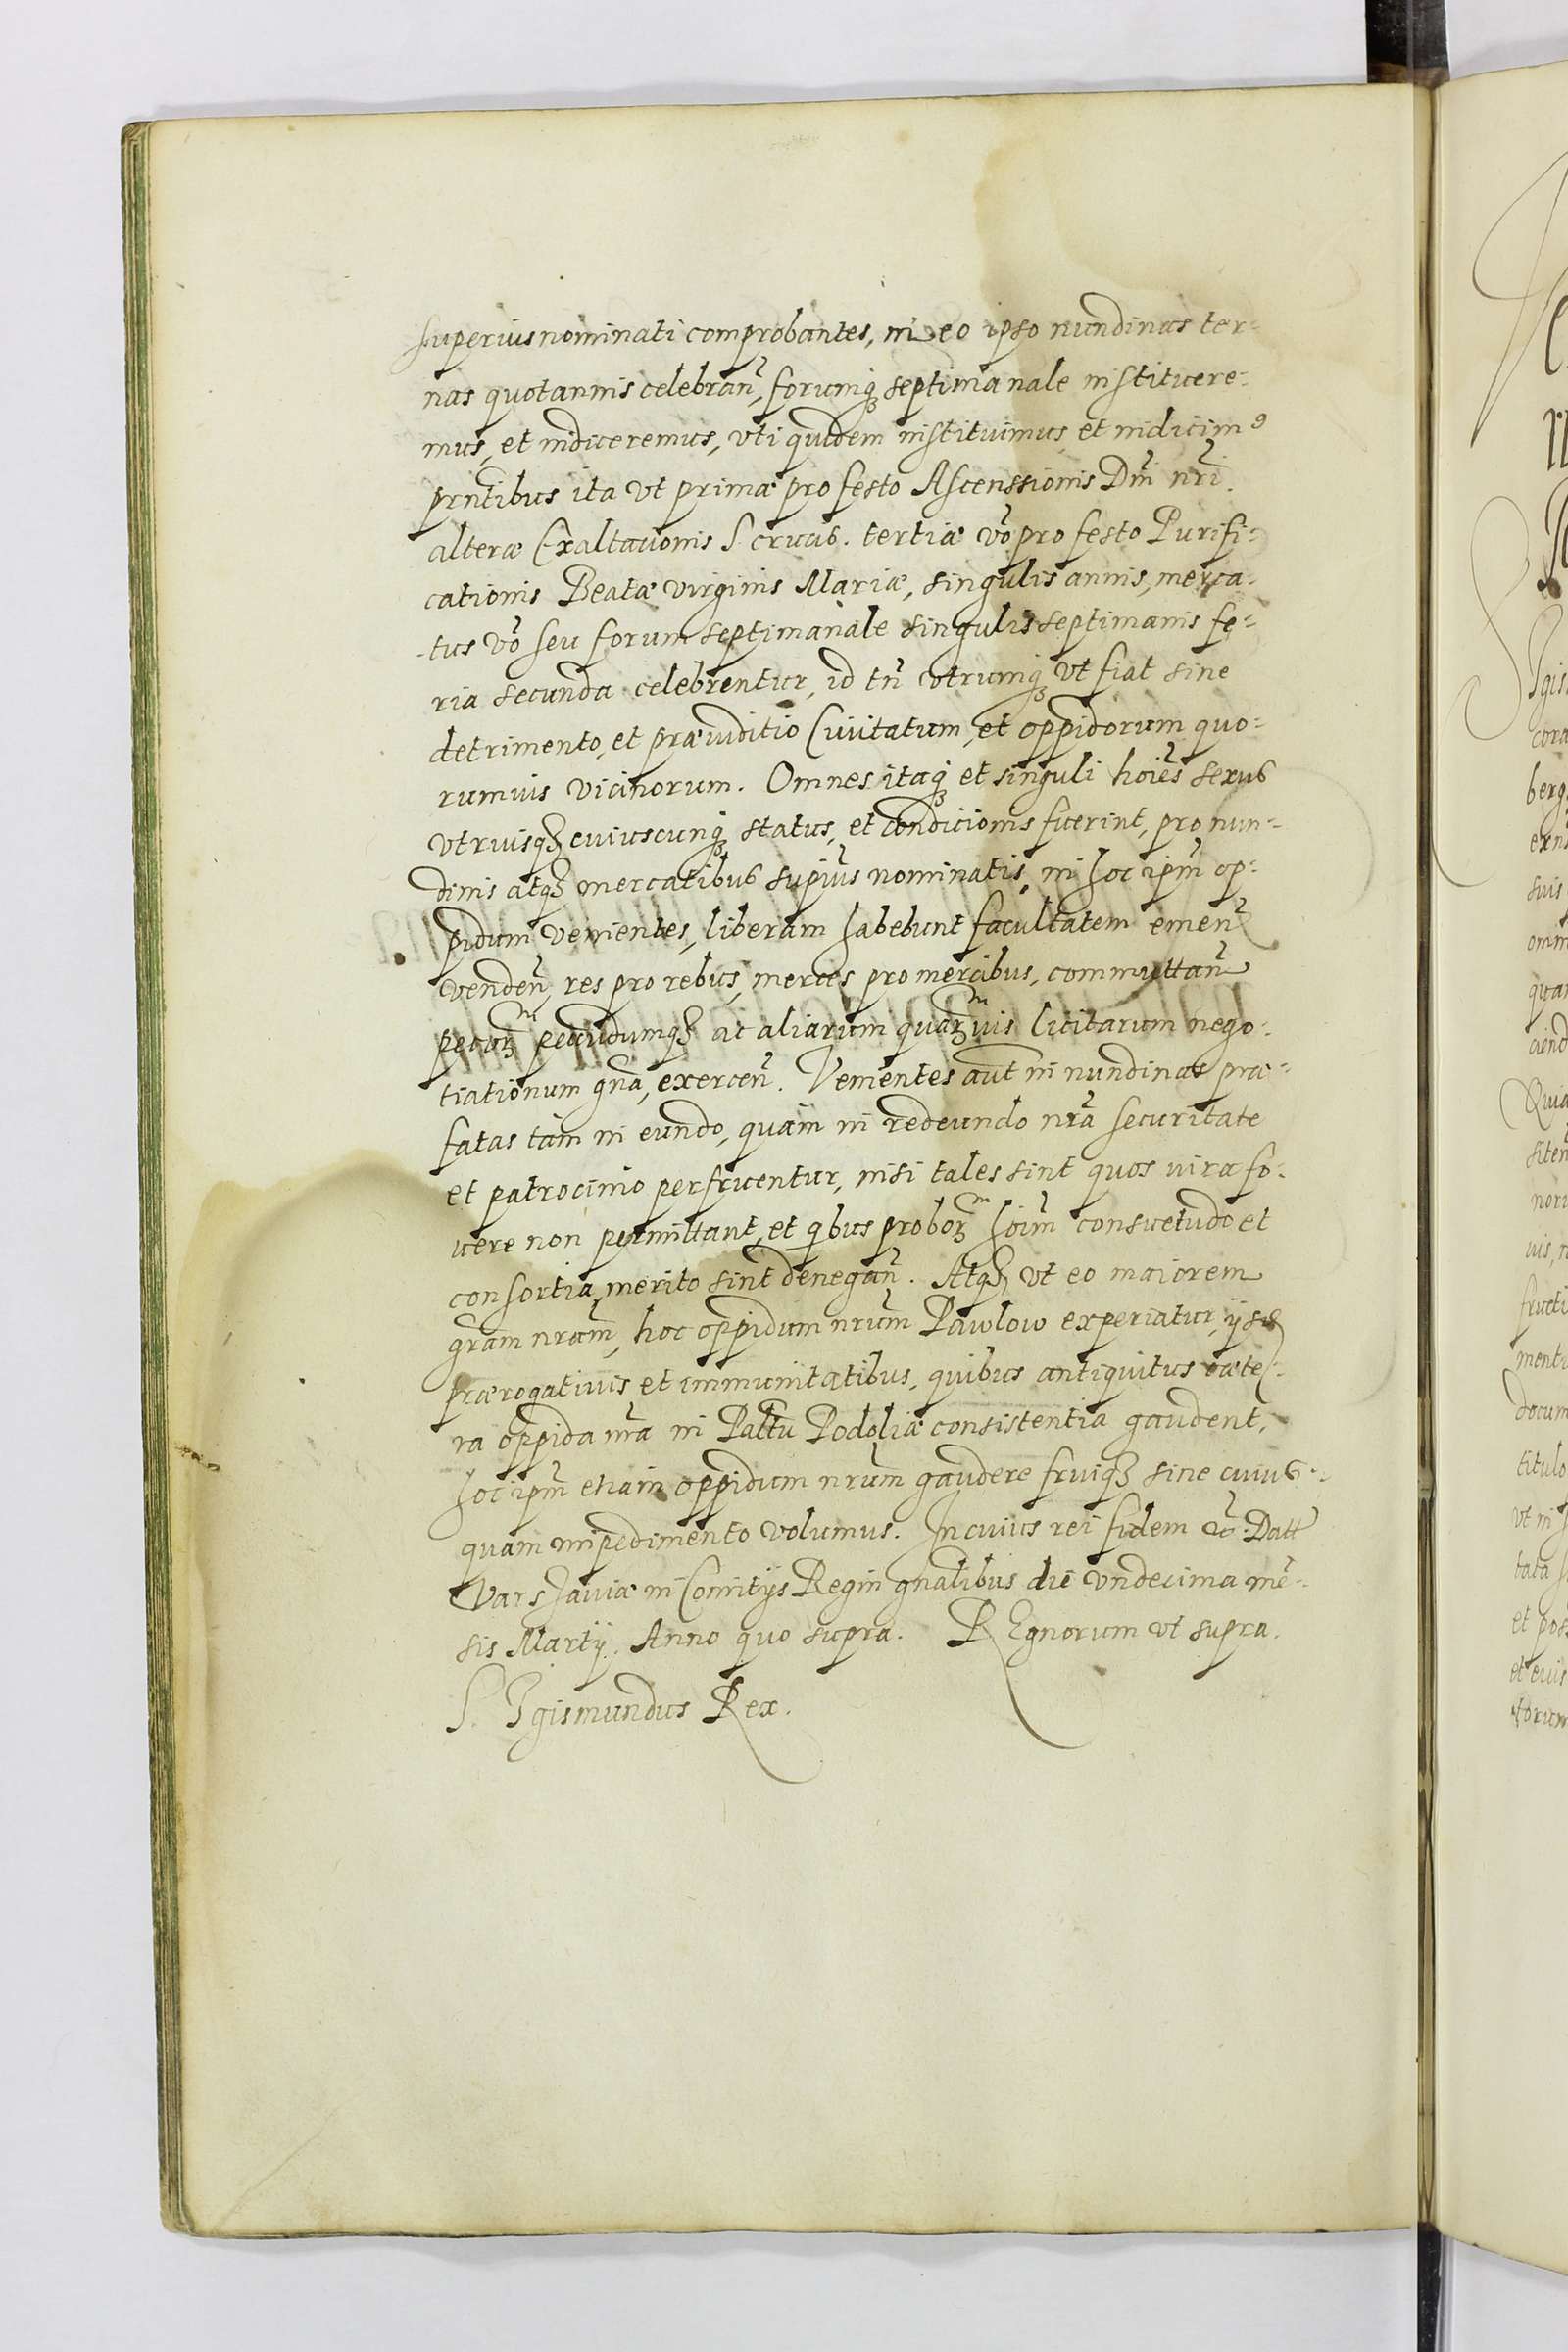 superius nominati comprobantes, in eo ipso nundinas ter-
nas quotannis celebrañ, forumq septimanale institucre-
mus, et indiceremus, vti quidem instituimus et indicim9
prñtibus ita vt primæ pro festo Ascenssionis Dñi nri.
alteræ Exaltationis S crucis. tertiæ vo pro festo Purifi-
cationis Beatæ virginis Mariæ, singulis annis, merca-
tus vo seu forum septimanale singulis septimanis fe-
ria secunda celebrentur, id tñ vtrumq vt fiat sine
detrimento, et præiuditio Ciuitatum, et oppidorum quo-
rumuis vicinorum. Omnes itaq et singuli hoies sexus
vtriusq cuiuscunq status, et condicionis fuerint, pro nun-
dinis atq mercatibus supius nominatis, in hoc ipm op-
pidum venientes, liberam habebunt facultatem emeñ
vendeñ, res pro rebus, merces pro mercibus, commuttañ
pecorm pecudumq ac aliarum quarmuis licitarum nego-
tiationum gña, exerceñ. Venientes aut in nundinas præ-
fatas tam in eundo, quam in redeundo nra securitate
et patrocinio perfruentur, nisi tales sint quos iura fo-
uere non permittant, et qibus proborm hoim consuetudo et
consortia merito sint denegañ. Atq vt eo maiorem
gram nram, hoc oppidum nrum Pawlow experiatur, ijsq
prærogatiuis et immunitatibus, quibus antiquitus cæte-
ra oppida nra in Palttu Podoliæ consistentia gaudent,
hoc ipm etiam oppidum nrum gaudere fruiq sine cuius-
quam impedimento volumus. In cuius rei fidem &c Datt
Varshauiæ in Comitijs Regin gnalibus die vndecima mē-
sis Martij. Anno quo supra. REgnorum vt supra.
S. Igismundus Rex.